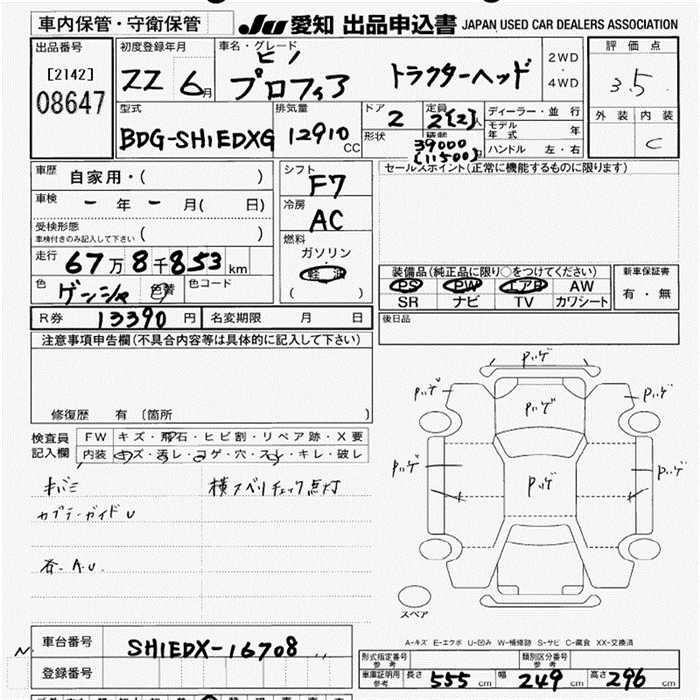 車内保管・守衛保管
JU 愛知 出品申込書 JAPAN USED CAR DEALERS ASSOCIATION
出品番号
[2142]
08647
初度登録年月
22 6月
車名・グレード
ヒノ
プロフィア トラクターヘッド
2WD
・
4WD
評価点
3.5
外装 内装
C
型式
BDG-SH1EDXG
排気量
12910 CC
ドア
2
形状
定員
2{2}人
積載
39000
{11500}
ディーラー・並行
モデル年式 年
ハンドル 左・右
車歴 自家用・( )
車検 ー 年 ー 月( 日)
受検形態
車検付きのみ記入して下さい ( )
走行 67万8千853km
色 ゲンシャ 色替 色コード
シフト
F7
冷房
AC
燃料
ガソリン
・
軽油
( )
セールスポイント(正常に機能するものに限ります)
装備品(純正品に限り○をつけてください)
PS PW エアB AW
SR ナビ TV カワシート
新車保証書
有・無
R券 13390 円 名変期限 月 日
後日品
注意事項申告欄(不具合内容等は具体的に記入して下さい)
修復歴 有〔箇所 〕
検査員
記入欄
FW キズ・飛石・ヒビ割・リペア跡・X要
内装 キズ・汚レ・コゲ・穴・スレ・キレ・破レ
キバミ
横スベリチェック点灯
カプラーガイドU
各. A.U.
Pハゲ
Pハゲ
Pハゲ
Pハゲ
Pハゲ
Pハゲ
Pハゲ
スペア
A-キズ E-エクボ U-凹み W-補修跡 S-サビ C-腐食 XX-交換済
車台番号 SH1EDX-16708
登録番号
形式指定番号
参考
類別区分番号
参考
車庫証明用
参考
長さ 555 cm 幅 249 cm 高さ 296 cm